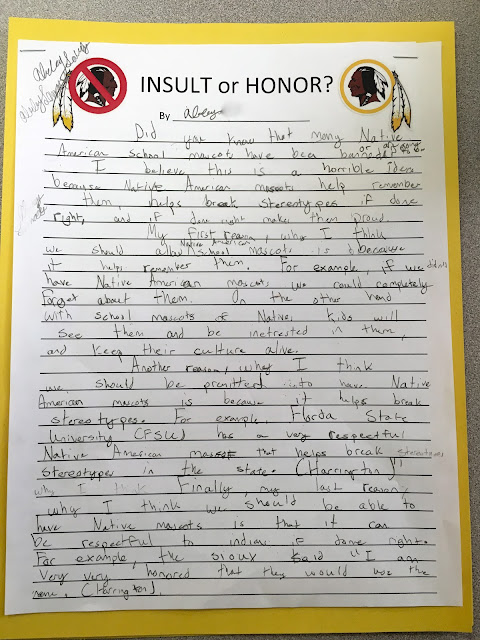 INSULT or HONOR?
By Abley
Did you know that many Native
American School mascots have been banned or are going to be
I believe this is a horrible idea
because Native American mascots help remember
them, helps break Stereotypes if done
right, and if done right make them proud.
My first reason, why I think
we should allow Native American school mascots is because
it helps remember them. For example, if we didn't
have Native American mascots we could completely
Forget about them. On the other hand
with school mascots of Natives, kids will
see them and be inetrested in them,
and keep their culture alive.
Another reason, why I think
we should be premitted to have Native
American mascots is because it helps break
stereotypes. For example, Florda State
University (FSU) has a very respectful
Native American mascot that helps break stereotypes
stereotypes in the state. (Harrington)"
why I think Finally, my last reason,
why I think we should be able to
have Native mascots is that it can
be respectful to indians if done right.
For example, the sioux said "I am
very very honored that they would use the
name. (Harrington).